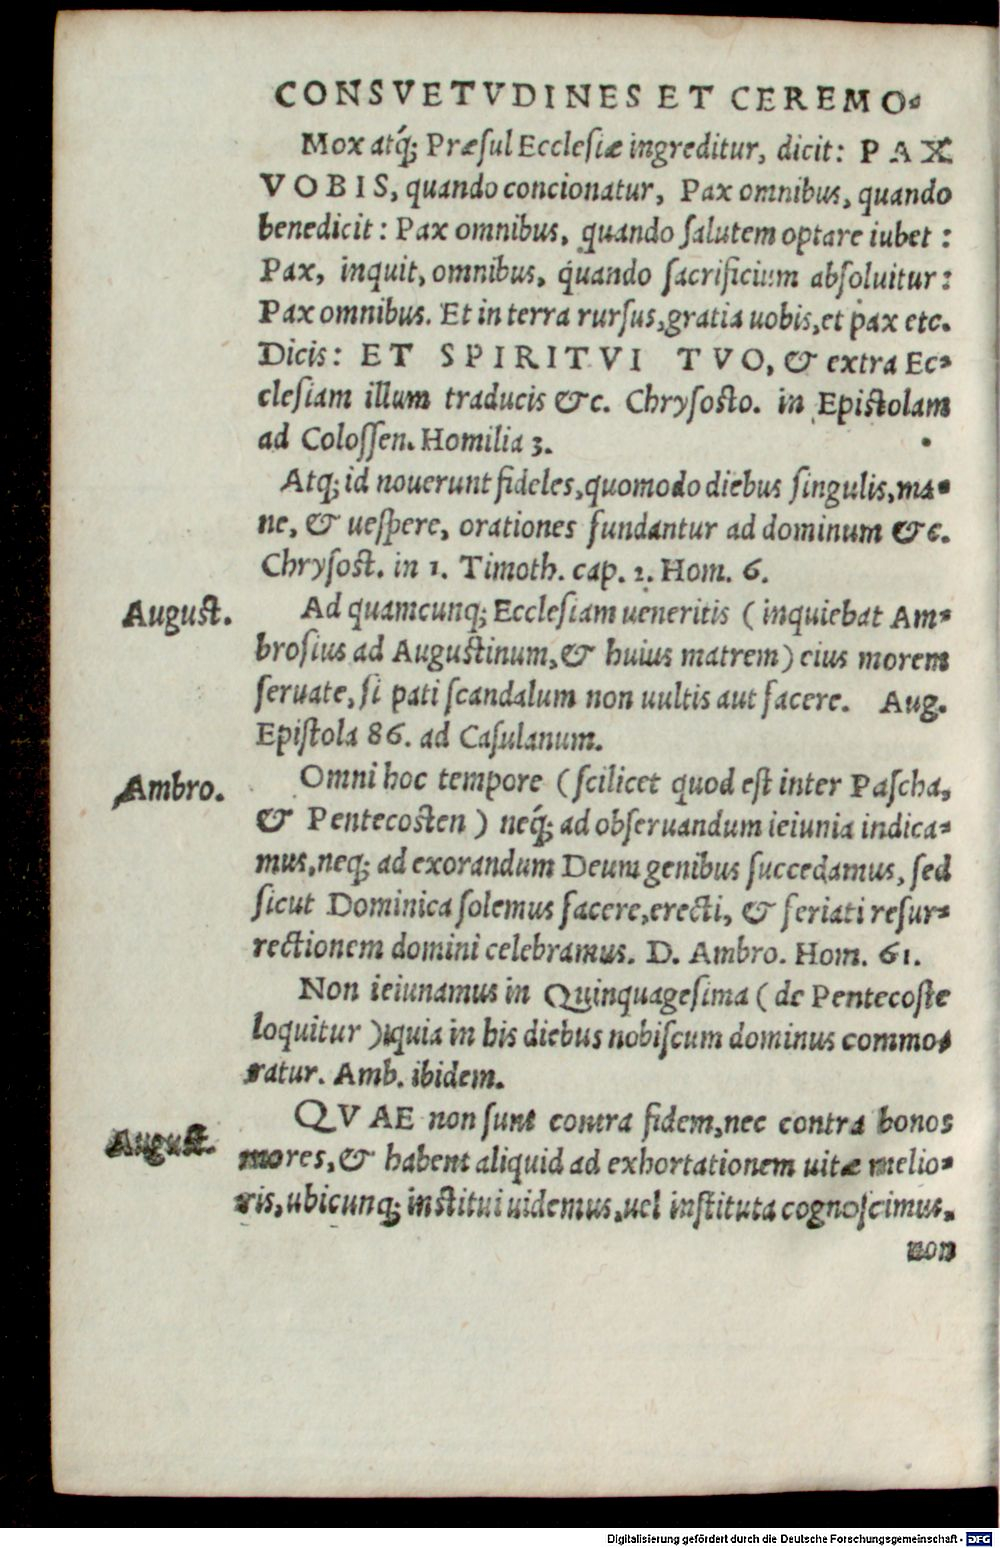 CONSVETVDINES ET CEREMO⸗
Mox atq́; Præſul Eccleſiæ ingreditur, dicit: PAX
VOBIS, quando concionatur, Pax omnibus, quando
benedicit: Pax omnibus, quando ſalutem optare iubet:
Pax, inquit, omnibus, quando ſacrificium abſoluitur:
Pax omnibus. Et in terra rurſus, gratia uobis, et pax etc.
Dicis: ET SPIRITVI TVO, & extra Ec⸗
cleſiam illum traducis &c. Chryſoſto. in Epiſtolam
ad Coloſſen. Homilia 3.
Atq; id nouerunt fideles, quomodo diebus ſingulis, ma⸗
ne, & ueſpere, orationes fundantur ad dominum &c.
Chryſoſt. in 1. Timoth. cap. 2. Hom. 6.
August.
Ad quamcunq; Eccleſiam ueneritis (inquiebat Am⸗
broſius ad Auguſtinum, & huius matrem) eius morem
ſeruate, ſi pati ſcandalum non uultis aut facere. Aug.
Epiſtola 86. ad Caſulanum.
Ambro.
Omni hoc tempore (ſcilicet quod eſt inter Paſcha,
& Pentecoſten) neq́; ad obſeruandum ieiunia indica⸗
mus, neq; ad exorandum Deum genibus ſuccedamus, ſed
ſicut Dominica ſolemus facere, erecti, & feriati reſur⸗
rectionem domini celebramus. D. Ambro. Hom. 61.
Non ieiunamus in Quinquageſima (de Pentecoſte
loquitur) quia in his diebus nobiſcum dominus commo⸗
ratur. Amb. ibidem.
August.
QVAE non ſunt contra fidem, nec contra bonos
mores, & habent aliquid ad exhortationem uitæ melio⸗
ris, ubicunq; inſtitui uidemus, uel inſtituta cognoſcimus,
non
Digitalisierung gefördert durch die Deutsche Forschungsgemeinschaft - DFG